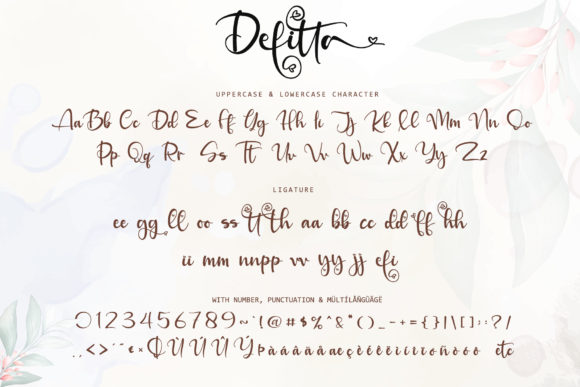 Defitta
UPPERCASE & LOWERCASE CHARACTER
Aa Bb Cc Dd Ee Ff Gg Hh Ii Jj Kk Ll Mm Nn Oo
Pp Qq Rr Ss Tt Uu Vv Ww Xx Yy Zz
LIGATURE
ee gg ll oo ss tt th aa bb cc dd ff hh
ii mm nn pp vv yy jj efi
WITH NUMBER, PUNCTUATION & MÜLTÍLÃÑGÜÄGË
0123456789~`!@#$%^&*()_-+={}|\[]:;?/
,.<>
etc